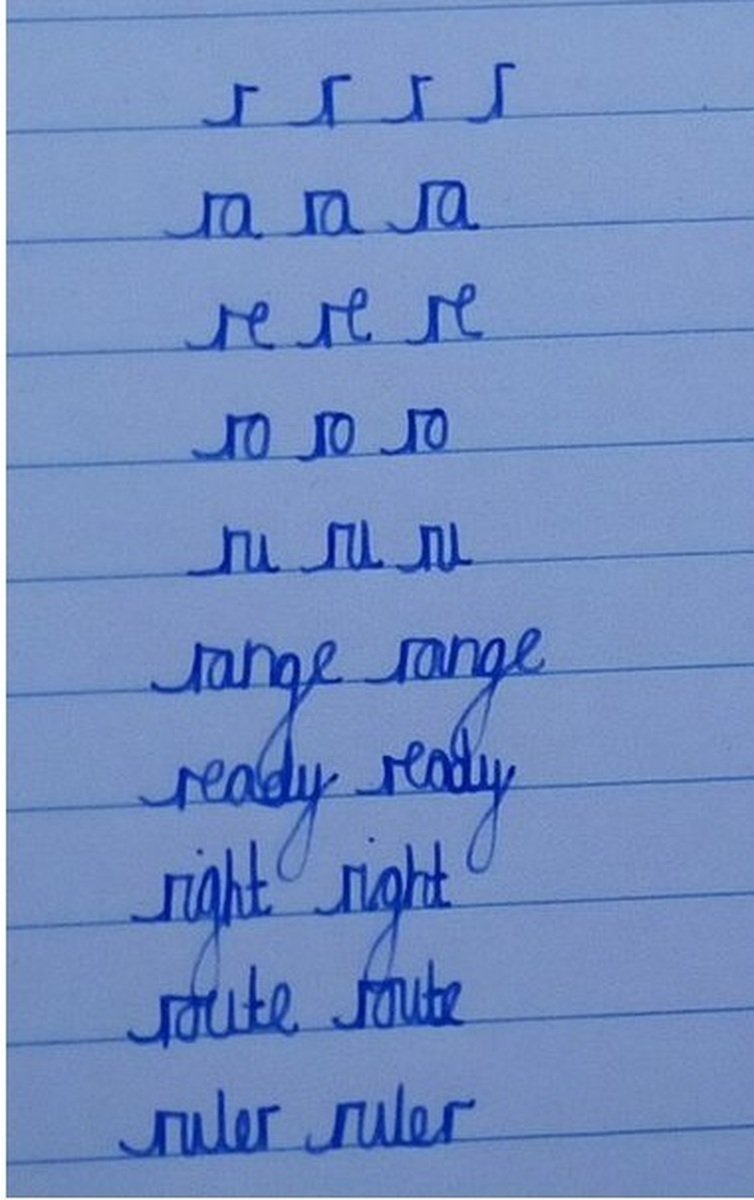 r r r r
ra ra ra
re re re
ro ro ro
ru ru ru
range range
ready ready
right right
route route
ruler ruler